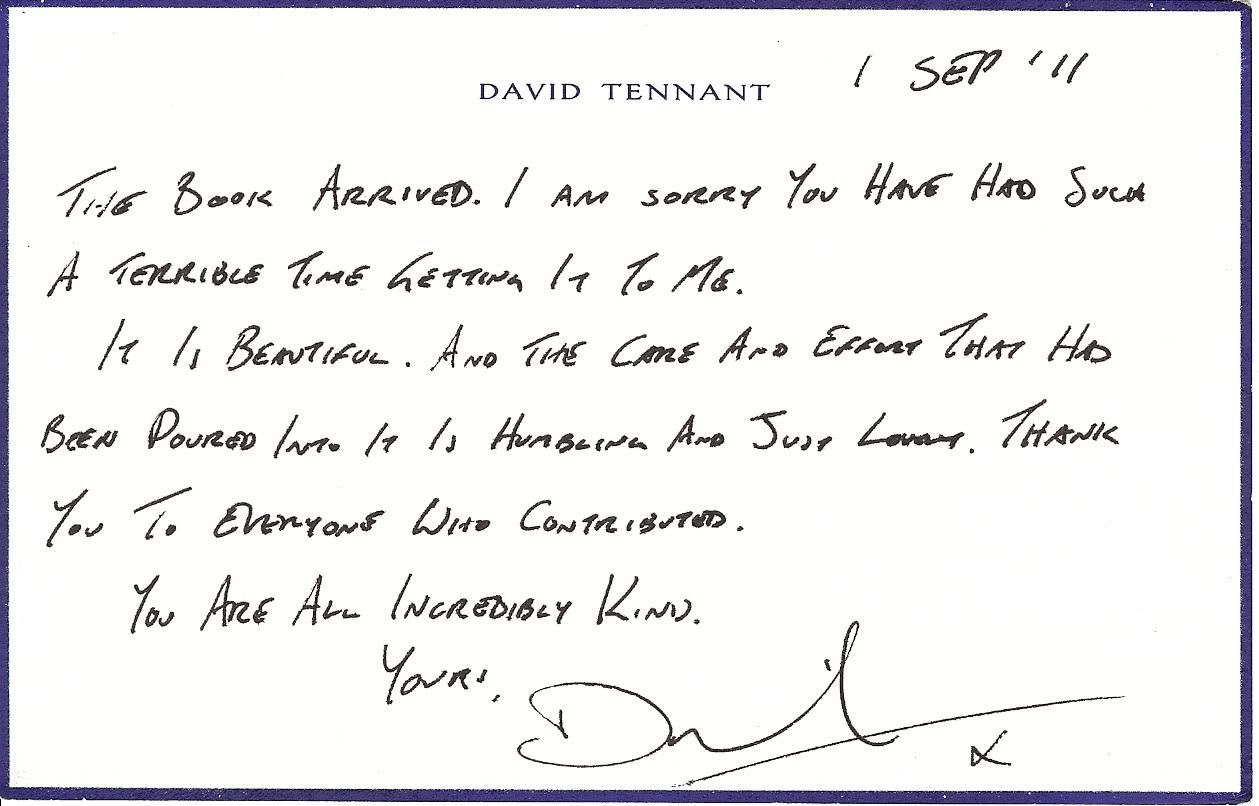 DAVID TENNANT
1 SEP '11
THE BOOK ARRIVED. I AM SORRY YOU HAVE HAD SUCH
A TERRIBLE TIME GETTING IT TO ME.
IT IS BEAUTIFUL. AND THE CARE AND EFFORT THAT HAD
BEEN POURED INTO IT IS HUMBLING AND JUST LOVELY. THANK
YOU TO EVERYONE WHO CONTRIBUTED.
YOU ARE ALL INCREDIBLY KIND.
YOURS,
David
x